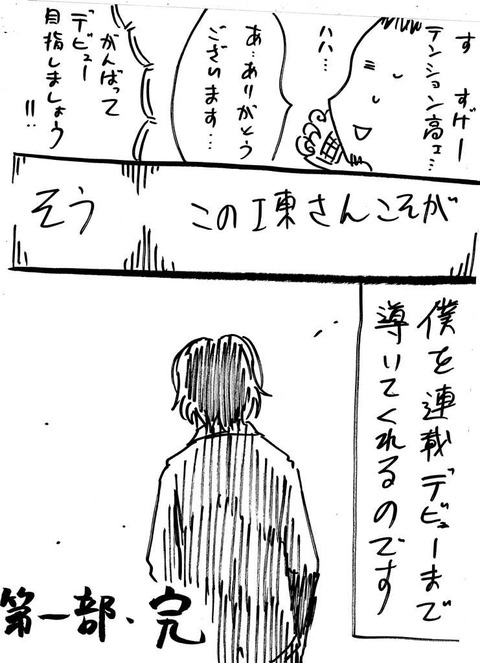 す すげー
テンション高ェ…
ハハ…
あ…ありがとう
ございます…
がんばって
デビュー
目指しましょう
!!
そう
この工東さんこそが
僕を連載デビューまで
導いてくれるのです
第一部、完